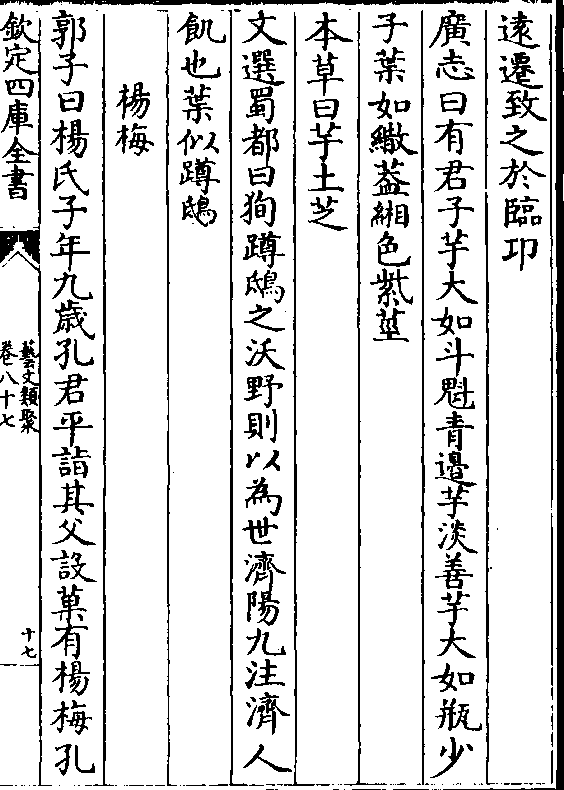 遠遷致之於臨卭
廣志曰有君子芋大如斗魁青邉芋淡善芋大如瓶少
子葉如繖葢緗色紫莖
本草曰芋土芝
文選蜀都曰狥蹲鴟之沃野則以為世濟陽九注濟人
飢也葉似蹲鴟
楊梅
郭子曰楊氏子年九歳孔君平詣其父設菓有楊梅孔
欽定四庫全書
藝文類聚
卷八十七
十七